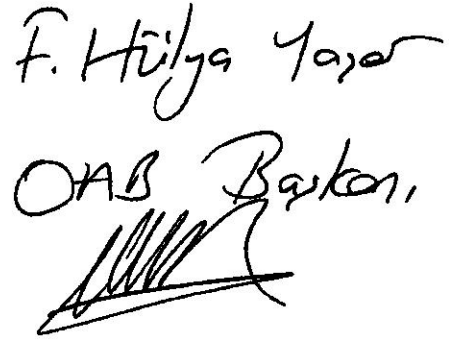 F. Hülya Yaşar
OAB Başkanı